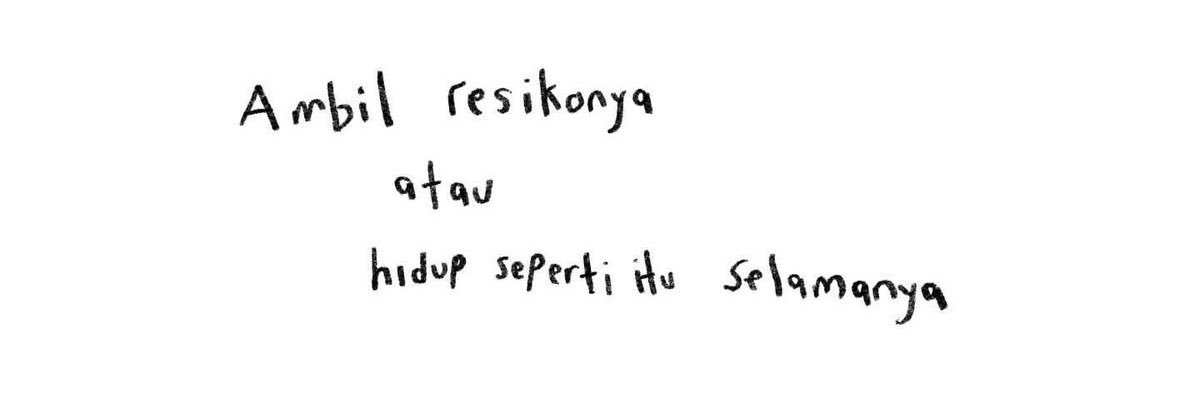 Ambil resikonya
atau
hidup seperti itu selamanya